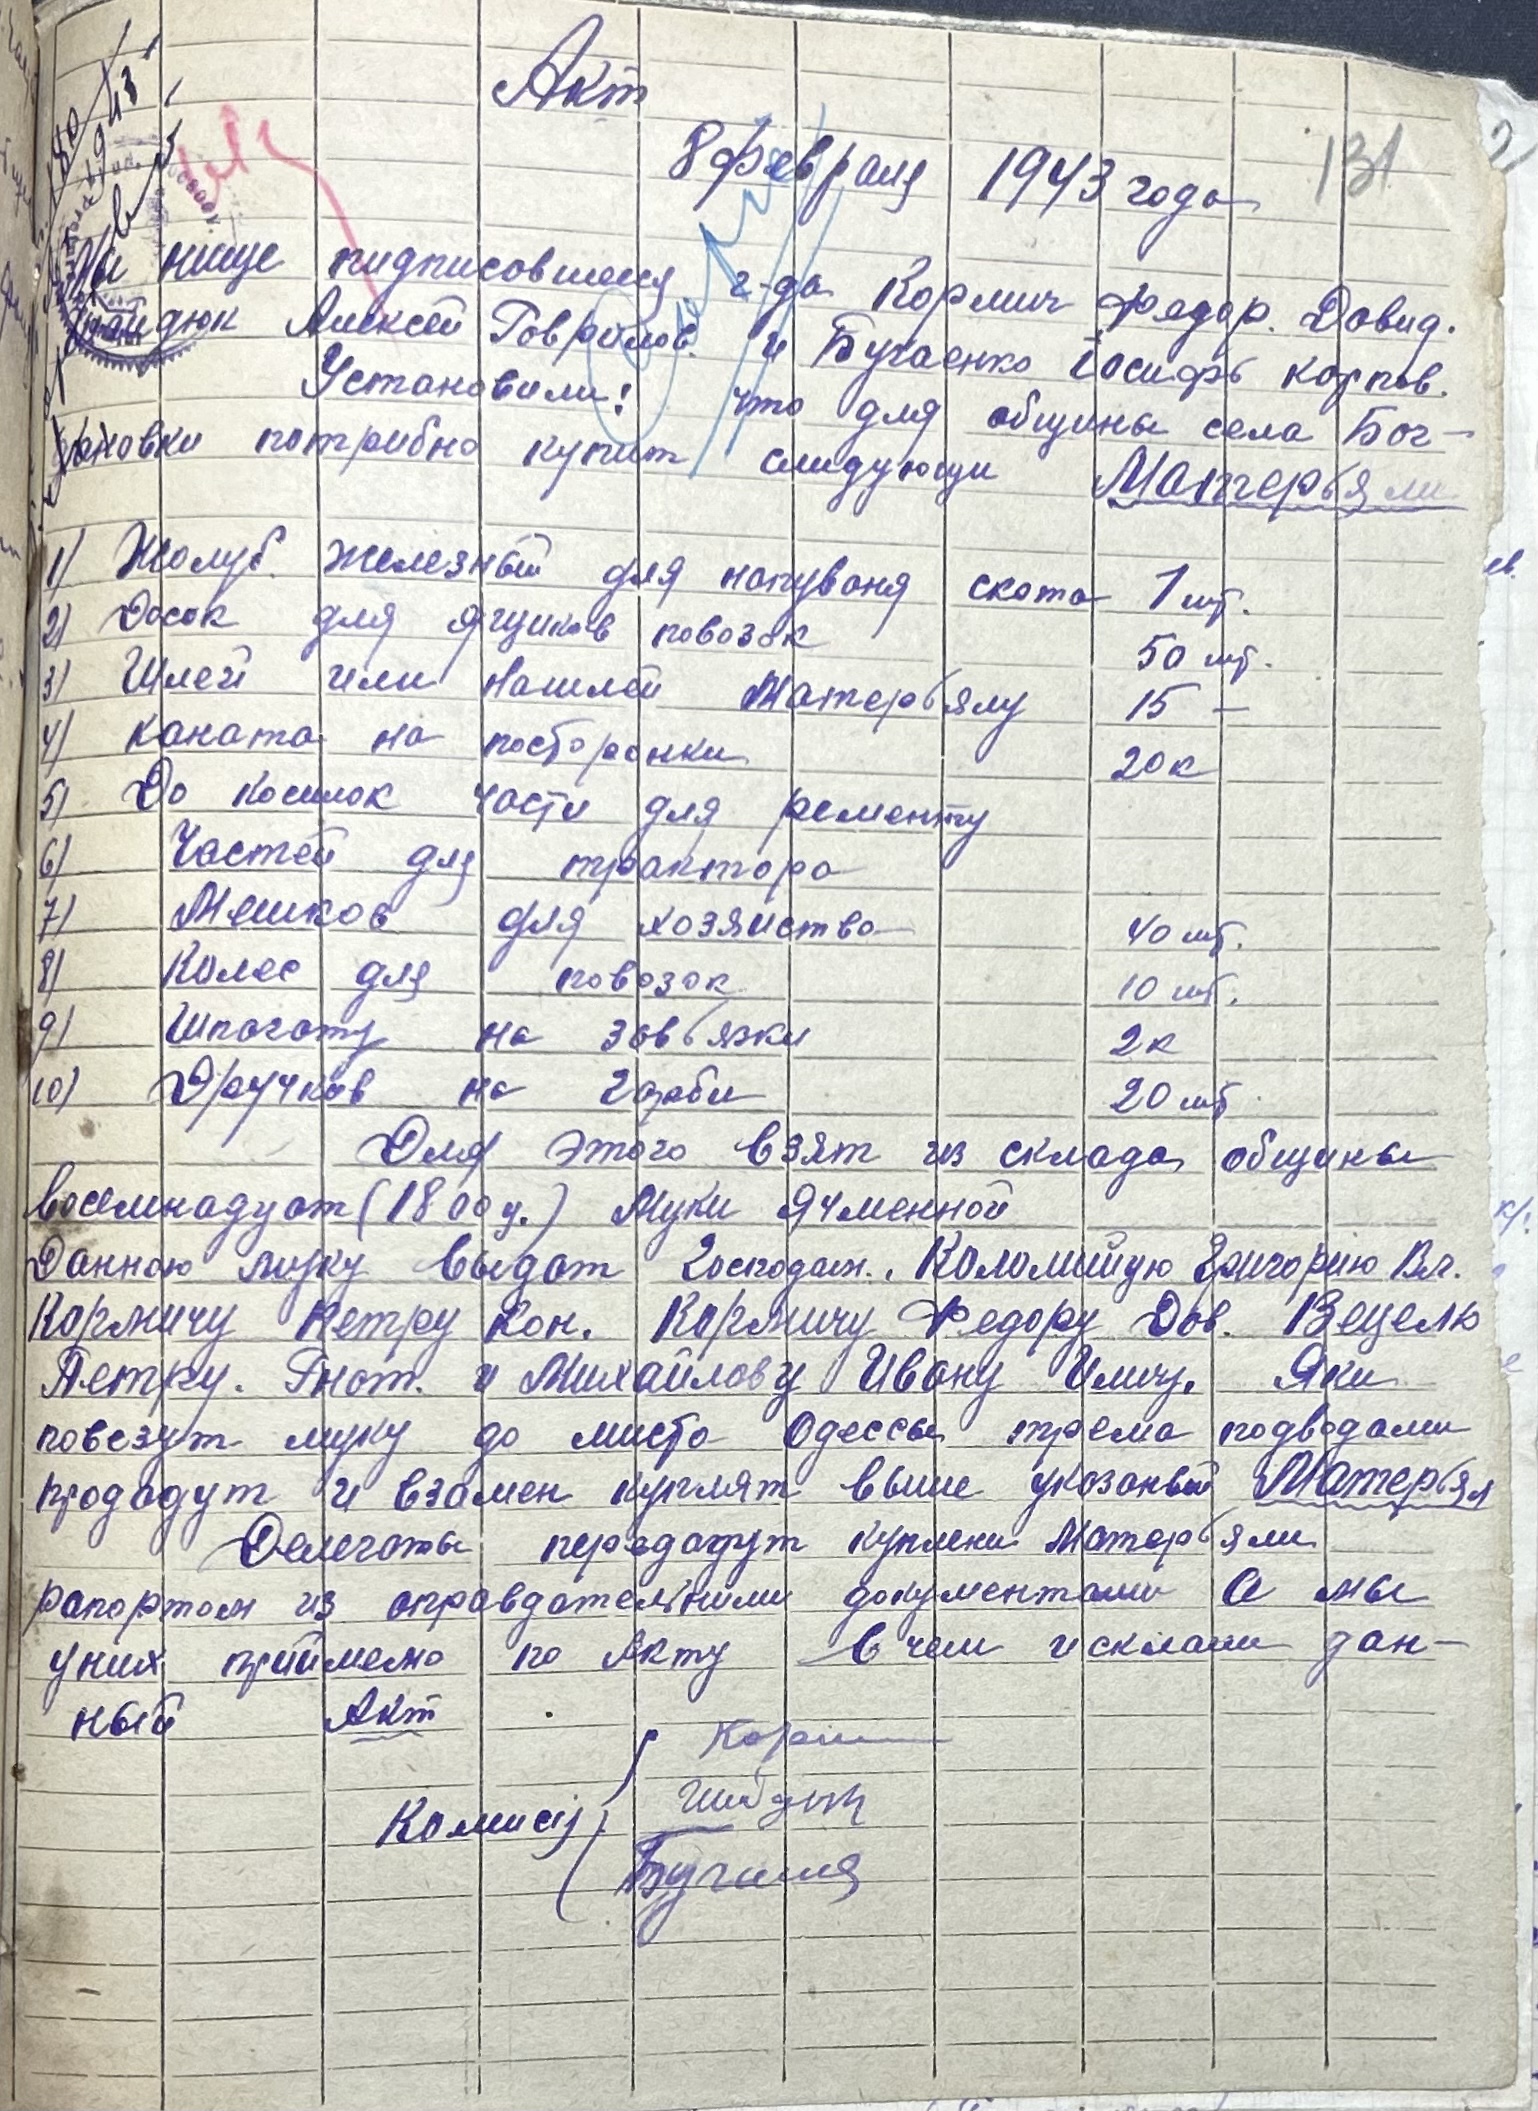 Акт
8 февраля 1943 года
131
Мы нище пидписовшиеся г-да Кормич Федор. Довид.
Гайдюк Алексей Говрилов. и Бугаенко Іосифъ Карпов.
Установили! что для общины села Бог-
дановки потрибно купит слидующи Матерьяли
1) Жолуб. железный для напуваня скота 1 шт.
2) Досок для ящиков повозок 50 шт.
3) Шлей или нашлей Матерьялу 15 —
4) Каната на посторонки 20 к
5) До косилок части для ременту
6) Частей для трактора
7) Мешков для хозяиства 40 шт.
8) Колес для повозок 10 шт.
9) Шпагату на завьязки 2 к
10) Дручков на гарби 20 шт
Для этого взят из склада общины
восемнадцат (1800 у.) Муки Ячменной
Данною муку выдат Господам. Коломийцю Григорию Вл.
Кормичу Петру Кон. Кормичу Федору Дов. Вецелю
Петру. Гнат. и Михайлову Ивану Илич. Яки
повезут муку до миста Одессы трема подводами
продадут и взамен куплят выше указаный Матерьял
Делегаты передадут куплени Матерьяли
рапортом из оправдательними документами а мы
у них приймемо по Акту в чем и склали дан-
ный Акт
Комисія